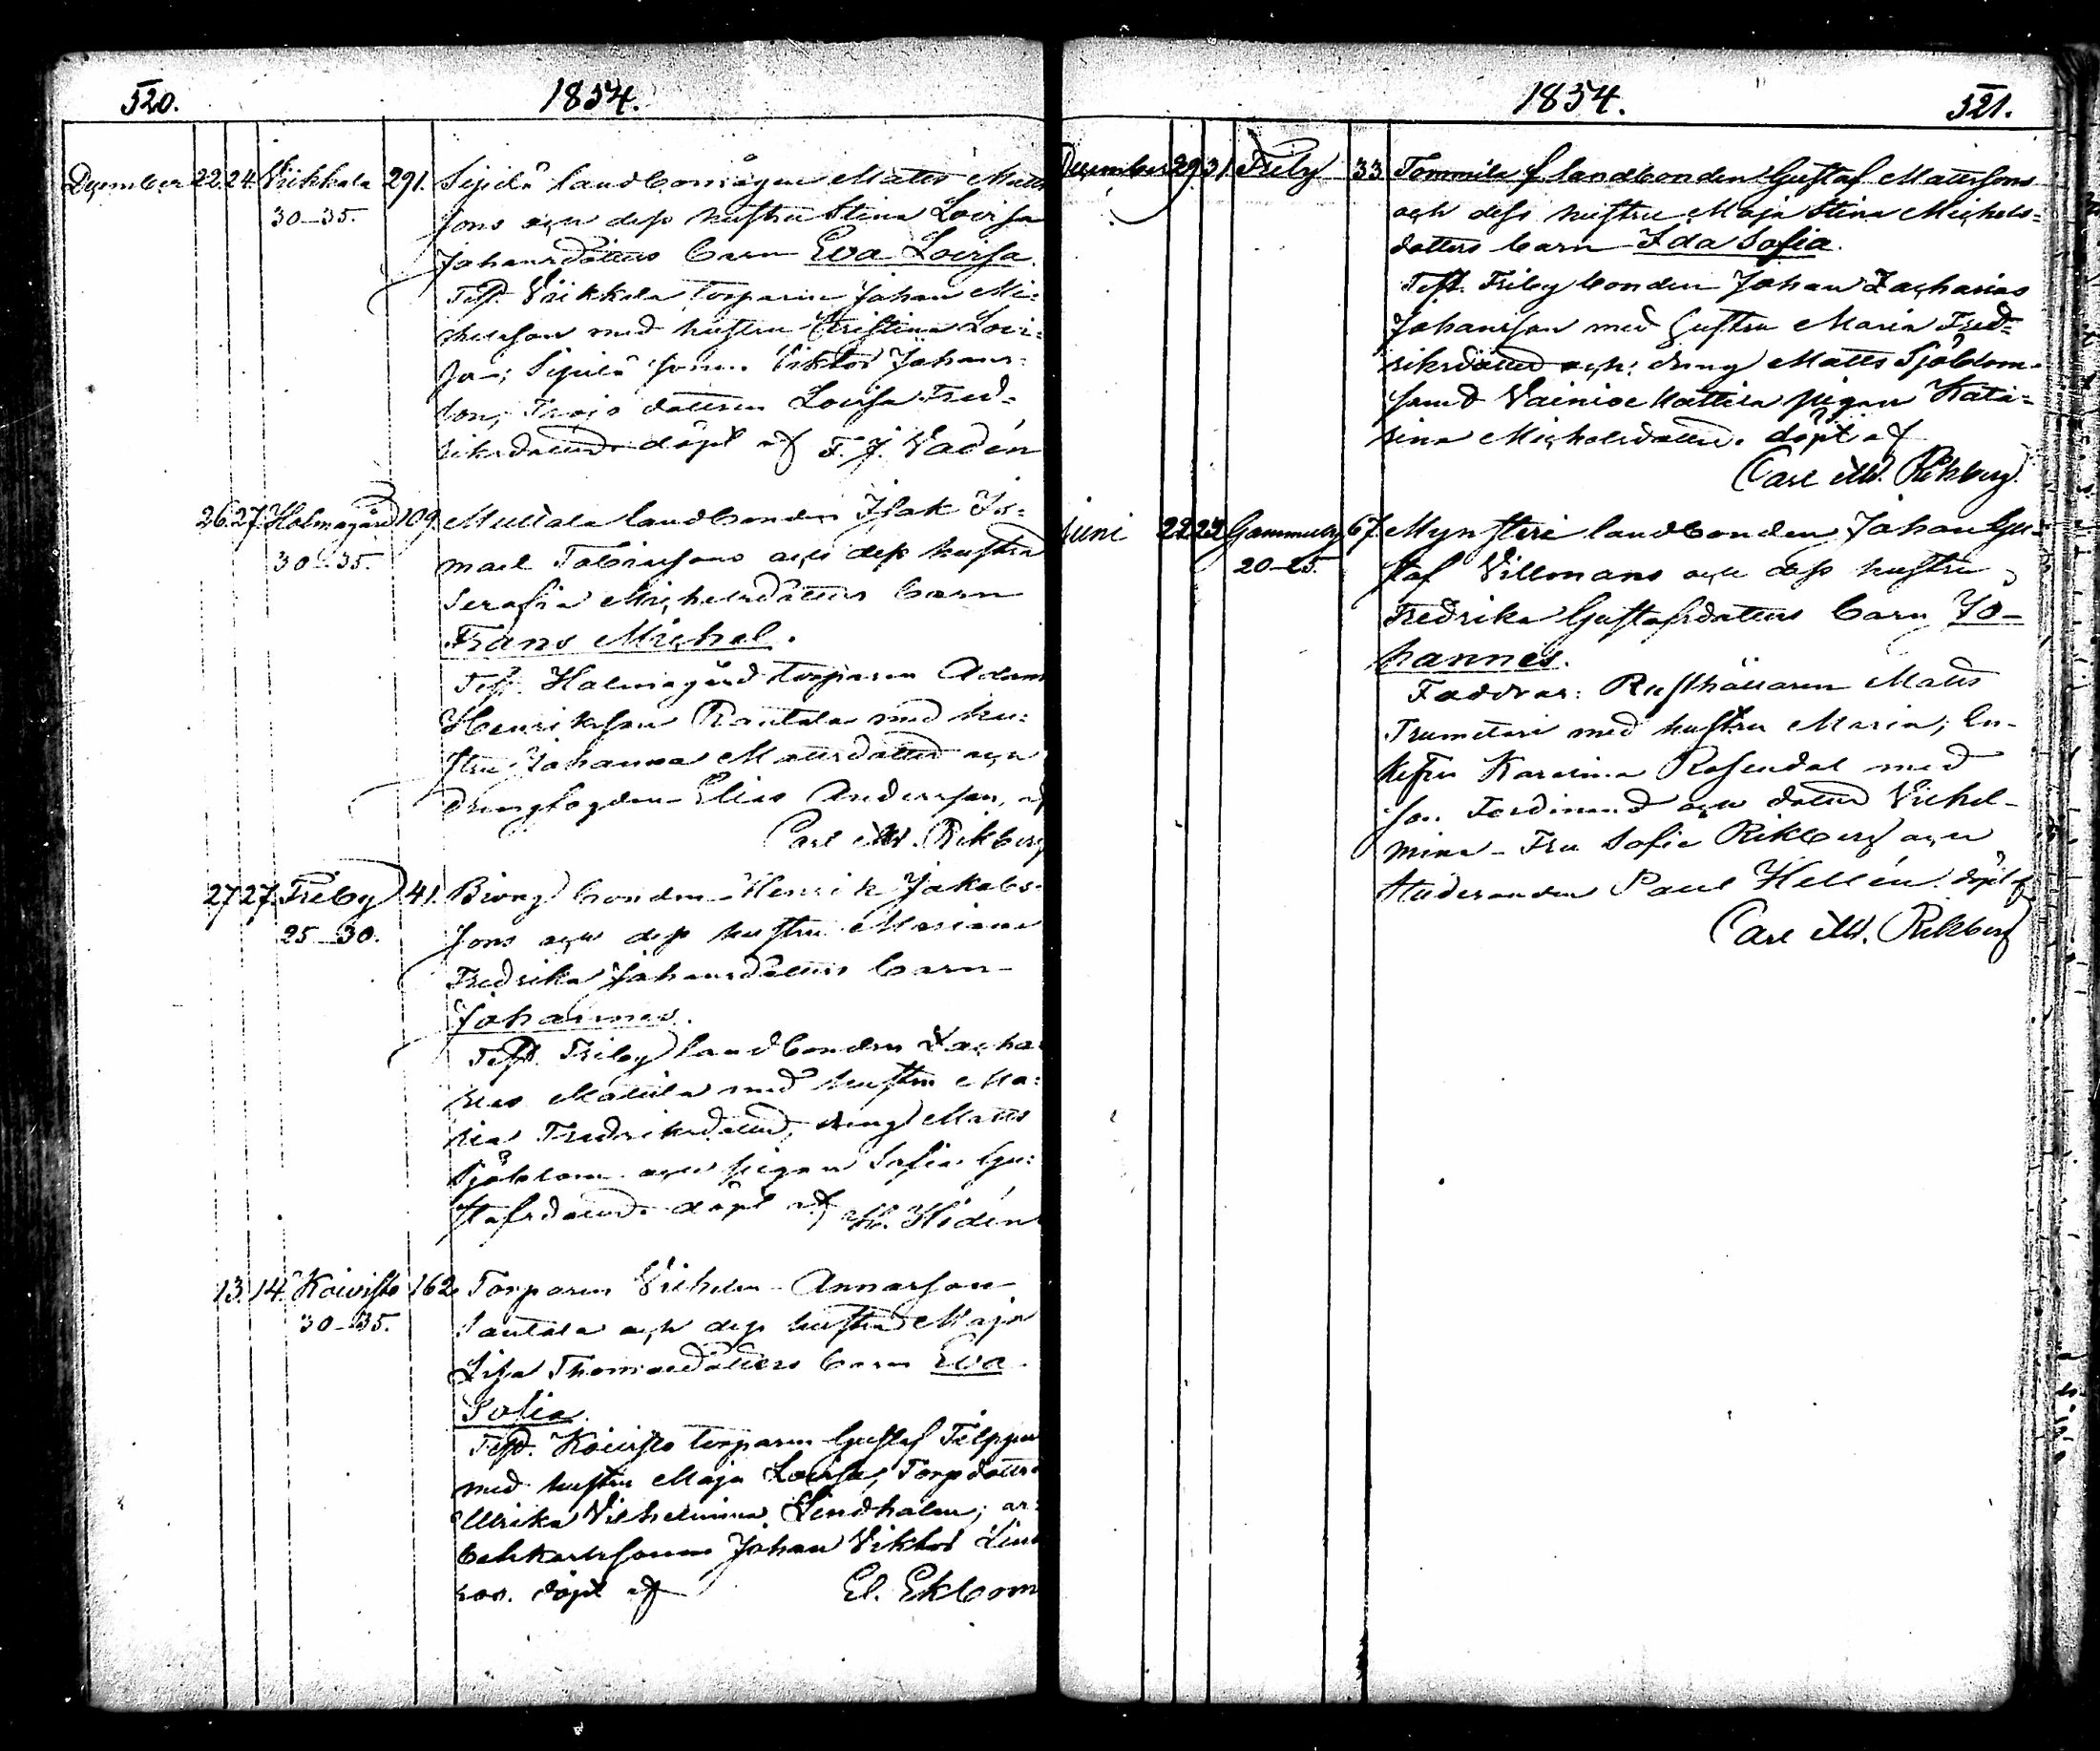 520. 1854.
December 22. 24. Viikkala 291. Sipilä landbomågen Matts Matts
30–35. sons och dess hustru Stina Lovisa
Johansdotters barn Eva Lovisa.
Test. Viikkala torparen Johan Mi-
kelsson med hustru Kristina Lovi-
sa; Sipilä sonen Viktor Johans-
son, dottren Lovisa Fred-
riksdotter. döpt af F. J. Vadén
26. 27. Holmagård 109. Mullala landbonden Isak Is-
30–35. mael Tobiassons och dess hustru
Serafia Michelsdotters barn
Frans Michel.
Test. Halmagård torparen Adam
Henriksson Rantala med hu-
stru Johanna Mattsdotter och
drängfogden Elias Andersson, af
Carl M. Rikberg
27. 27. Friby 41. bonden Henrik Jakobs-
25–30. sons och dess hustru Mariana
Fredrika Johansdotters barn
Johannes.
Test. Friby landbonden Zacha-
rias Mattila med hustru Ma-
ria Fredriksdotter, dräng Matts
Sjöblom och pigan Sofia Gu-
stafsdotter. döpt af M. Hidén
13. 14. Koivisto 162. Torparen Vilhelm Annasson
30–35. Santala och dess hustru Maja
Lisa Thomasdotters barn Eva
Sofia.
Test. Koivisto torparen Gustaf Filppu
med hustru Maja Lovisa, Torpdottren
Ulrika Vilhelmina Lindholm; ar-
betskarlssonen Johan Viktor Lind
roos. döpt af El. Ekbom
1854. 521.
December 29. 31. Friby 33 Tommila f landbonden Gustaf Mattssons
och dess hustru Maja Stina Michels-
dotters barn Ida Sofia.
Test. Friby bonden Johan Zacharias
Johansson med hustru Maria Fred-
riksdotter och dräng Matts Sjöblom
samt Vainio Mattila pigan Kata-
rina Michelsdotter. döpt af
Carl M. Rikberg.
Juni 22 24 Gammelby 67. Mynsteri landbonden Johan Gu-
20–25. staf Villmans och dess hustru
Fredrika Gustafsdotters barn Jo-
hannes.
Faddrar: Rusthållaren Matts
Trumetari med hustru Maria; En-
kefru Karolina Rosendal med
son Ferdinand och dotter Vilhel-
mina – Fru Sofie Rikberg och
Studeranden Paul Hellén. döpt af
Carl M. Rikberg